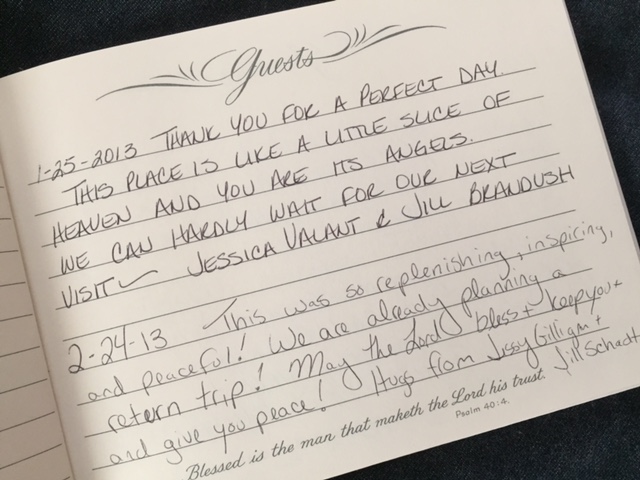 Guests
1-25-2013 THANK YOU FOR A PERFECT DAY.
THIS PLACE IS LIKE A LITTLE SLICE OF
HEAVEN AND YOU ARE ITS ANGELS.
WE CAN HARDLY WAIT FOR OUR NEXT
VISIT~ JESSICA VALANT & JILL BRANDUSH
2-24-13 This was so replenishing, inspiring,
and peaceful! We are already planning a
return trip! May the Lord bless + keep you +
and give you peace! Hugs from Jissy Gilligan +
Jill Schadt
Blessed is the man that maketh the Lord his trust.
Psalm 40:4.